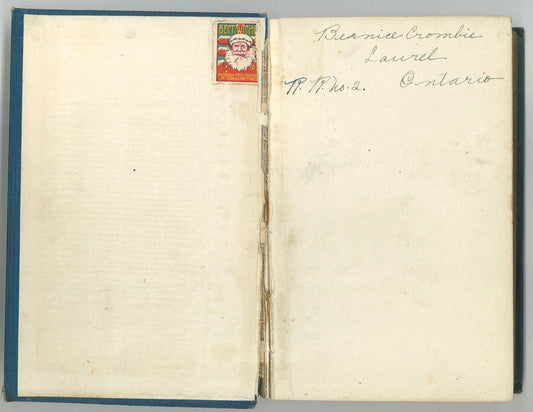 BEST WISHES
Bernice Crombie
Laurel
R. R. no. 2. Ontario